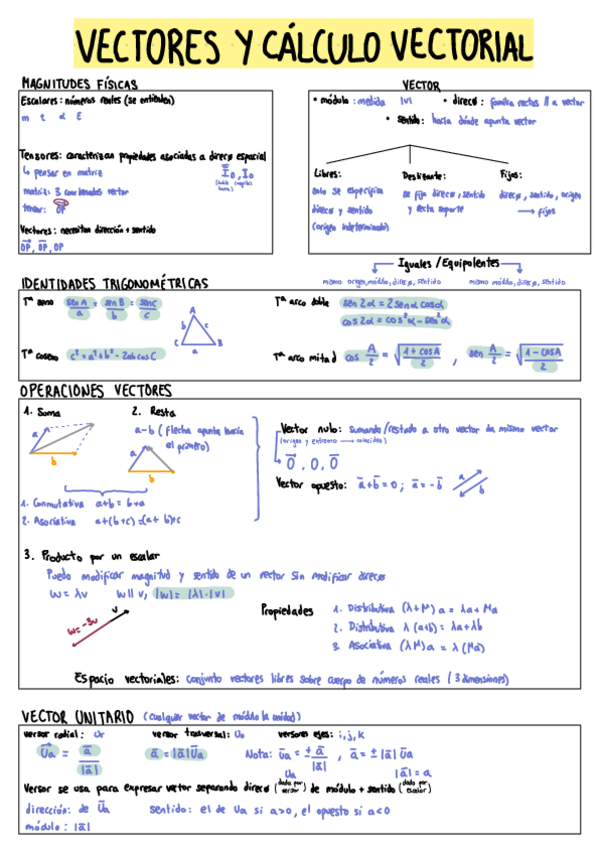 VECTORES Y CÁLCULO VECTORIAL
MAGNITUDES FÍSICAS
Escalares: números reales (se entienden)
m t α E
Tensores: caracterizan propiedades asociadas a direcø espacial
↳ pensar en matriz
matriz: 3 coordenadas vector
tensor: OP
I̿₀, I₀
Vectores: necesitan dirección + sentido
OP, OP, OP
VECTOR
• módulo: medida |v| • direcø: familia rectas // a vector
• sentido: hacia dónde apunta vector
Libres:
solo se especifica
direcø y sentido
(origen indeterminado)
Deslizante:
se fija direcø, sentido
y recta soporte
Fijos:
direcø, sentido, origen
→ fijos
Iguales / Equipolentes
mismo origen, módulo, direcø, sentido
mismo módulo, direcø, sentido
IDENTIDADES TRIGONOMÉTRICAS
Tª seno sen A / a = sen B / b = sen C / c
A
b c
C B
a
Tª coseno c² = a² + b² - 2ab cos C
Tª arco doble sen 2α = 2 sen α cos α
cos 2α = cos² α - sen² α
Tª arco mitad cos A/2 = √(1 + cos A / 2) , sen A/2 = √(1 - cos A / 2)
OPERACIONES VECTORES
1. Suma
a
b
2. Resta
a-b (flecha apunta hacia
el primero)
a
b
1. Conmutativa a+b = b+a
2. Asociativa a+(b+c) = (a+b)+c
Vector nulo: sumando/restado a otro vector da mismo vector
(origen y extremo → coinciden)
0, 0, 0
Vector opuesto: a + b = 0 ; a = -b
a
b
3. Producto por un escalar
Puedo modificar magnitud y sentido de un vector sin modificar direcø
w = λv w || v, |w| = |λ| · |v|
v
w = -3v
Propiedades
1. Distributiva (λ+M) a = λa + Ma
2. Distributiva λ (a+b) = λa + λb
3. Asociativa (λM) a = λ (Ma)
Espacio vectoriales: conjunto vectores libres sobre cuerpo de números reales (3 dimensiones)
VECTOR UNITARIO (cualquier vector de módulo la unidad)
versor radial: Ur versor trasversal: Uθ versores ejes: i, j, k
Ua = a / |a|
a = |a| Ua
Nota: Ua = ± a / |a| , a = ± |a| Ua
Ua |a| = a
Versor se usa para expresar vector separando direcø (dada por versor) de módulo + sentido (dado por escalar)
dirección: de Ua sentido: el de Ua si a>0, el opuesto si a<0
módulo: |a|